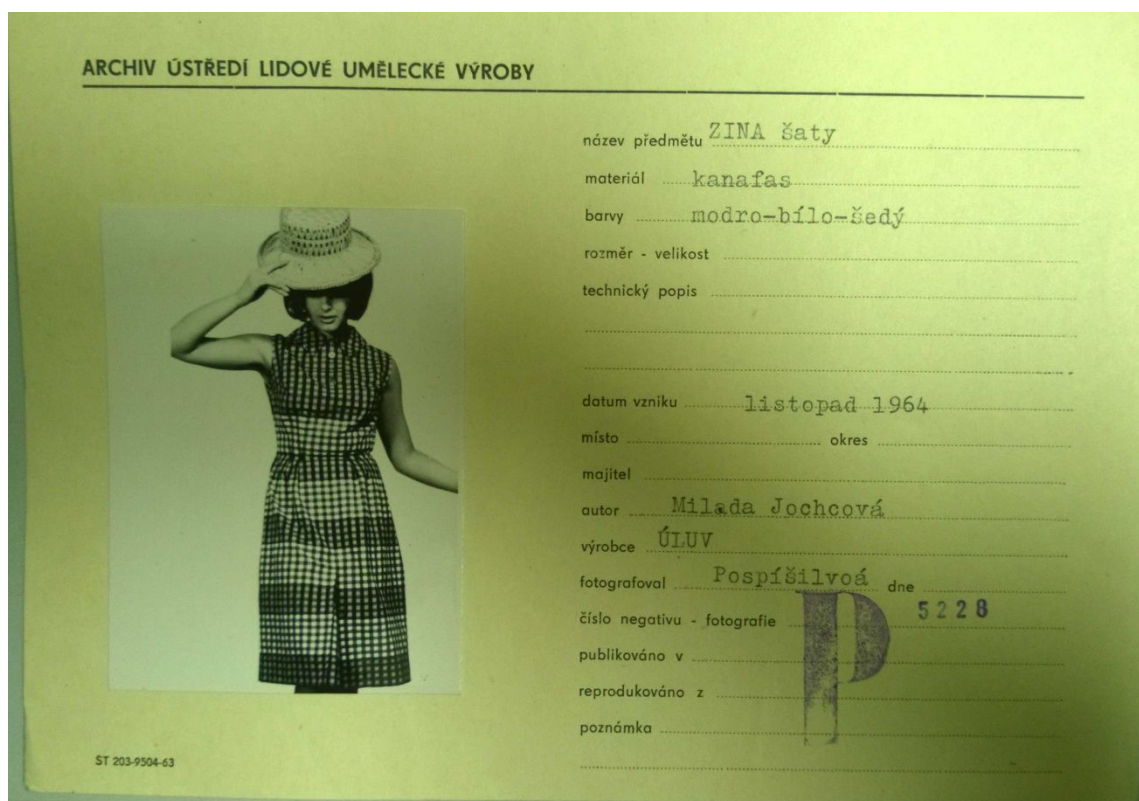 ARCHIV ÚSTŘEDÍ LIDOVÉ UMĚLECKÉ VÝROBY
název předmětu ZINA šaty
materiál kanafas
barvy modro-bílo-šedý
rozměr - velikost
technický popis
datum vzniku listopad 1964
místo okres
majitel
autor Milada Jochcová
výrobce ÚLUV
fotografoval Pospíšilvoá dne
číslo negativu - fotografie P 5228
publikováno v
reprodukováno z
poznámka
ST 203-9504-63